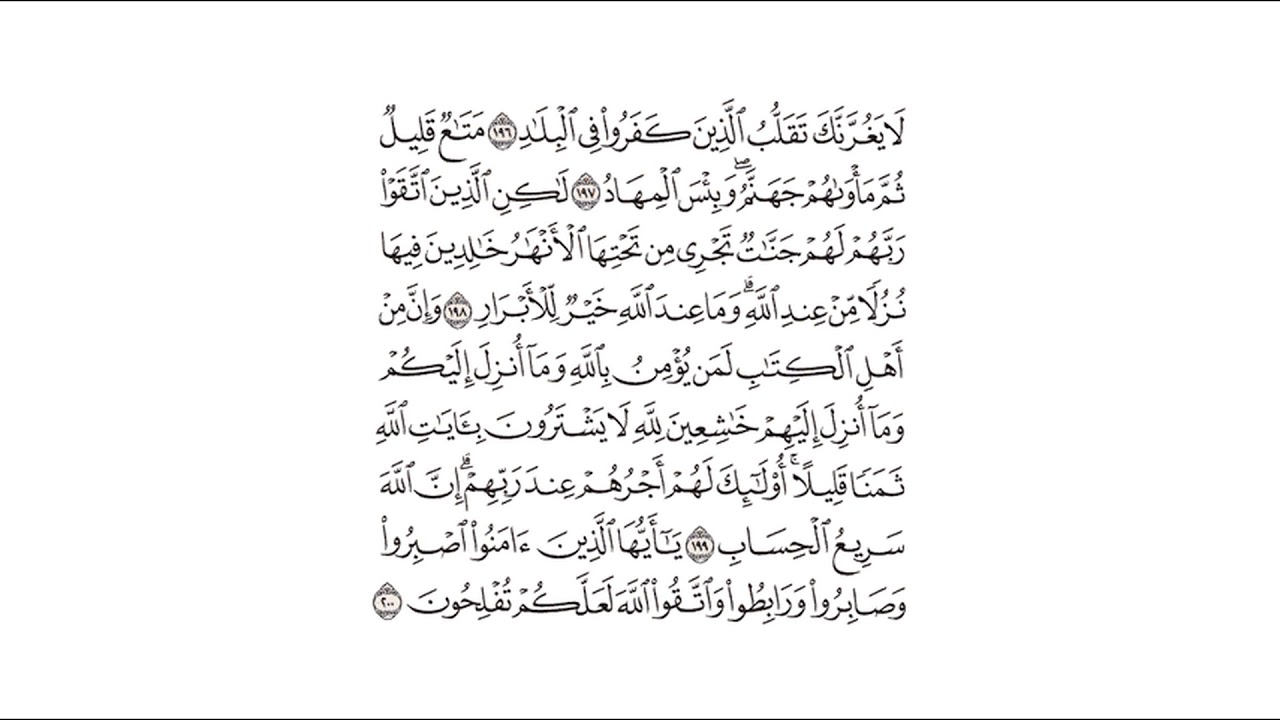 لَا يَغُرَّنَّكَ تَقَلُّبُ ٱلَّذِينَ كَفَرُوا۟ فِى ٱلْبِلَـٰدِ ١٩٦ مَتَـٰعٌ قَلِيلٌ
ثُمَّ مَأْوَىٰهُمْ جَهَنَّمُ ۖ وَبِئْسَ ٱلْمِهَادُ ١٩٧ لَـٰكِنِ ٱلَّذِينَ ٱتَّقَوْا۟
رَبَّهُمْ لَهُمْ جَنَّـٰتٌ تَجْرِى مِن تَحْتِهَا ٱلْأَنْهَـٰرُ خَـٰلِدِينَ فِيهَا
نُزُلًا مِّنْ عِندِ ٱللَّهِ ۗ وَمَا عِندَ ٱللَّهِ خَيْرٌ لِّلْأَبْرَارِ ١٩٨ وَإِنَّ مِنْ
أَهْلِ ٱلْكِتَـٰبِ لَمَن يُؤْمِنُ بِٱللَّهِ وَمَآ أُنزِلَ إِلَيْكُمْ
وَمَآ أُنزِلَ إِلَيْهِمْ خَـٰشِعِينَ لِلَّهِ لَا يَشْتَرُونَ بِـَٔايَـٰتِ ٱللَّهِ
ثَمَنًا قَلِيلًا ۚ أُو۟لَـٰٓئِكَ لَهُمْ أَجْرُهُمْ عِندَ رَبِّهِمْ ۗ إِنَّ ٱللَّهَ
سَرِيعُ ٱلْحِسَابِ ١٩٩ يَـٰٓأَيُّهَا ٱلَّذِينَ ءَامَنُوا۟ ٱصْبِرُوا۟
وَصَابِرُوا۟ وَرَابِطُوا۟ وَٱتَّقُوا۟ ٱللَّهَ لَعَلَّكُمْ تُفْلِحُونَ ٢٠٠